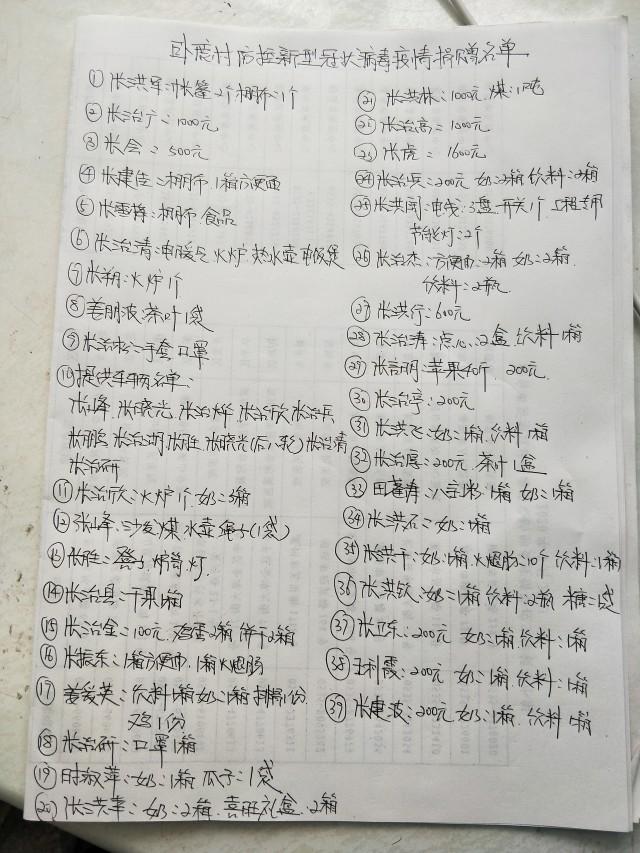 卧鹿村防控新型冠状病毒疫情捐赠名单
① 张洪军:帐篷2个棚布:1个
② 张治广:1000元
③ 张会:500元
④ 张建佳:棚布.1箱方便面
⑤ 张雪梅:棚布.食品
⑥ 张治清:电暖气 火炉 热水壶 电饭煲
⑦ 张朔:火炉1个
⑧ 姜朋波:茶叶1袋
⑨ 张治水:手套 口罩
⑩ 提供车辆名单:
张峰.张晓光.张治烨.张治欣.张治兵
张鹏 张治湖 张胜.张晓光(后八轮)张治清
张治研
⑪ 张治欣:火炉1个.奶:3箱
⑫ 张峰:沙发.煤.水壶 绳子(1袋)
⑬ 张胜:凳子.炉筒.灯.
⑭ 张治县:干果1箱
⑮ 张治金:100元.鸡蛋2箱 饼干2箱
⑯ 张振东:1箱方便面.1箱火腿肠
⑰ 姜爱英:饮料1箱奶:1箱 排骨1份.
鸡1份
⑱ 张治研:口罩1箱
⑲ 时淑苹:奶:1箱 瓜子:1袋
⑳ 张洪奉:奶:2箱.喜旺礼盒:2箱
㉑ 张洪林:1000元.煤:1吨
㉒ 张治高:1000元
㉓ 张虎:1600元
㉔ 张治兵:200元 奶:2箱 饮料:2箱
㉕ 张洪刚:电线:3盘.开关1个.工程专用
节能灯:2个
㉖ 张治杰:方便面:2箱 奶:2箱.
饮料:2瓶
㉗ 张洪行:600元
㉘ 张治涛:点心:2盒 饮料1箱
㉙ 张言明:苹果40斤.200元.
㉚ 张治亭:200元
㉛ 张洪飞:奶:1箱.饮料1箱
㉜ 张治厚:200元.茶叶1盒
㉝ 田莲涛:八宝粥1箱 奶:1箱
㉞ 张洪石:奶:1箱
㉟ 张洪干:奶:1箱.火腿肠:10个 饮料:1箱
㊱ 张洪钦:奶:1箱 饮料:2瓶 糖:1袋
㊲ 张卫东:200元 奶:1箱 饮料:1箱
㊳ 王利霞:200元 奶:1箱.饮料:1箱
㊴ 张建波:200元 奶:1箱.饮料1箱